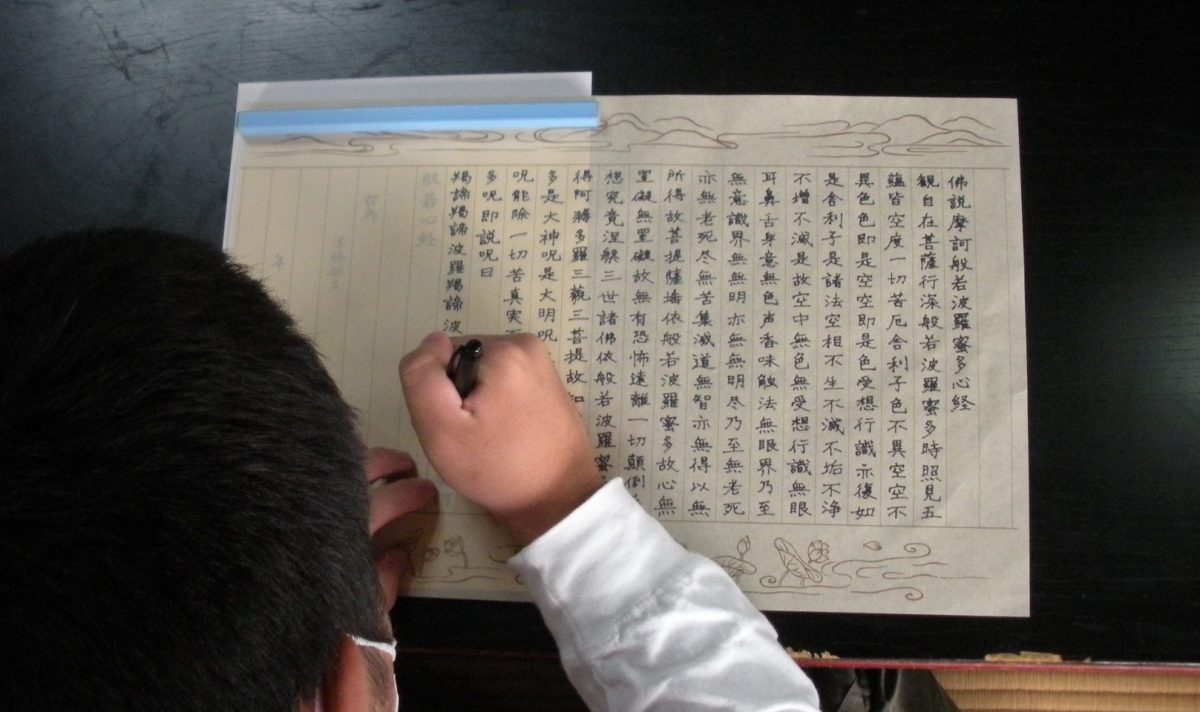 佛説摩訶般若波羅蜜多心経
観自在菩薩行深般若波羅蜜多時照見五
蘊皆空度一切苦厄舎利子色不異空空不
異色色即是空空即是色受想行識亦復如
是舎利子是諸法空相不生不滅不垢不浄
不増不減是故空中無色無受想行識無眼
耳鼻舌身意無色声香味触法無眼界乃至
無意識界無無明亦無無明尽乃至無老死
亦無老死尽無苦集滅道無智亦無得以無
所得故菩提薩埵依般若波羅蜜多故心無
罣礙無罣礙故無有恐怖遠離一切顛倒
想究竟涅槃三世諸佛依般若波羅蜜
得阿耨多羅三藐三菩提故知
多是大神呪是大明呪
呪能除一切苦真実
多呪即説呪曰
羯諦羯諦波羅羯諦波
般若心経